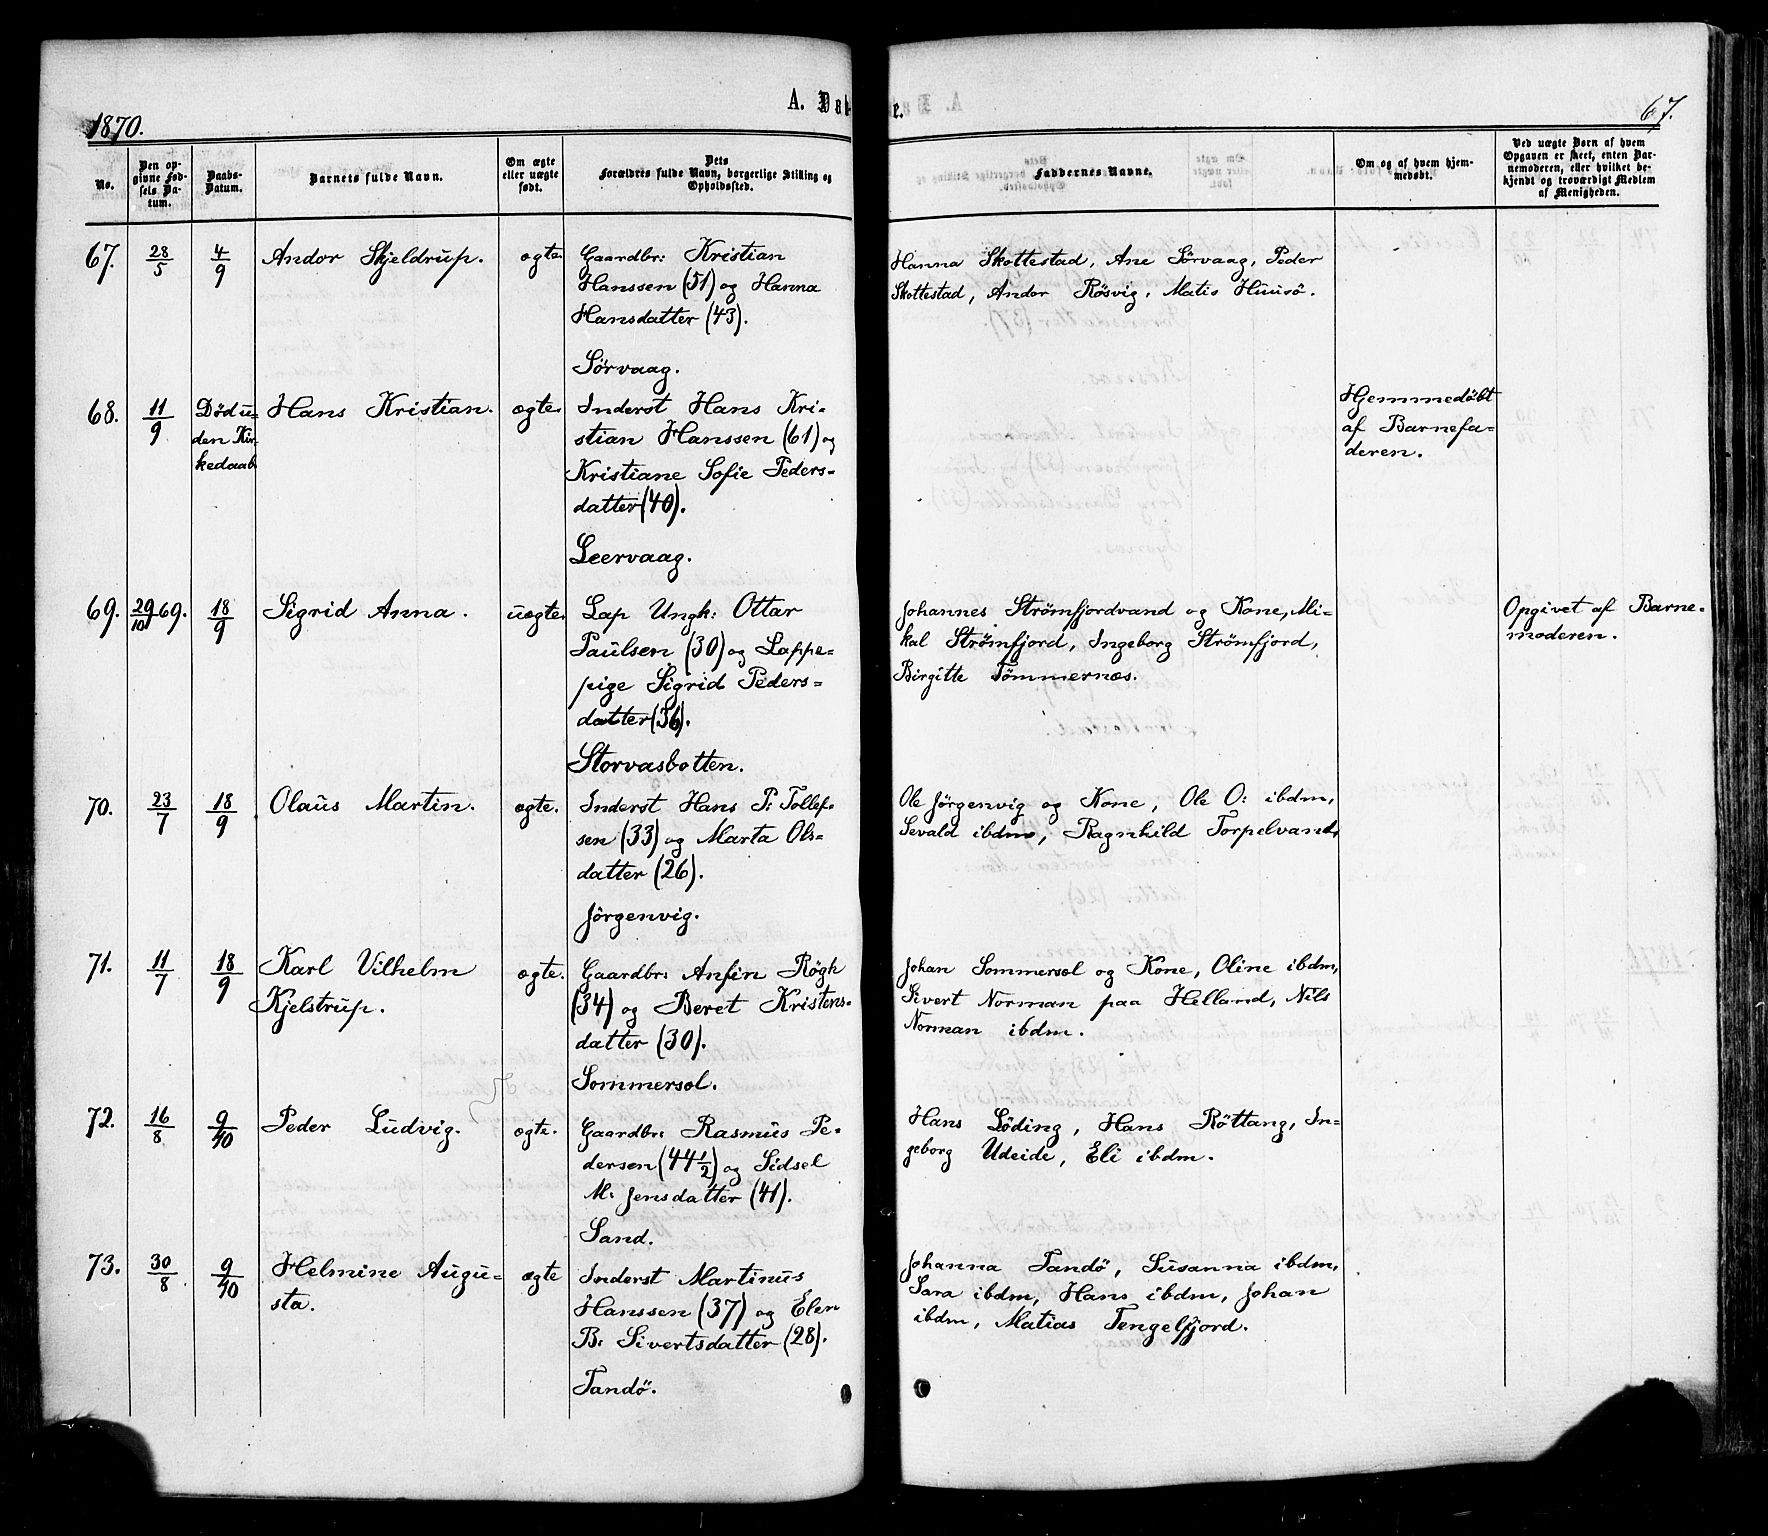 1870.
A. Daab
e.
67.
No.
Den op-
givne Fød-
sels Da-
tum.
Daabs-
Datum.
Barnets fulde Navn.
Om ægte
eller uægte
født.
Dets
Forældres fulde Navn, borgerlige Stilling og
Opholdssted.
Faddernes Navne.
Om og af hvem hjem-
medøbt.
Ved uægte Børn af hvem
Opgaven er skeet, enten Bar-
nemoderen, eller hvilket be-
kjendt og troværdigt Medlem
af Menigheden.
67. 28/5 4/9 Andor Skjeldrup. ægte. Gaardbr: Kristian
Hanssen (51) og Hanna
Hansdatter (43).
Sørvaag.
Hanna Skottestad, Ane Sørvaag, Peder
Skottestad, Andor Røsvig, Matis Huusö.
68. 11/9 Død u-
den Kir-
kedaab
Hans Kristian. ægte. Inderst Hans Kri-
stian Hanssen (61) og
Kristiane Sofie Peders-
datter (40).
Leervaag.
Hjemmedøbt
af Barnefa-
deren.
69. 29/10 69. 18/9 Sigrid Anna. uægte. Lap Ungk: Ottar
Paulsen (30) og Lappe-
pige Sigrid Peders-
datter (36).
Storvasbotten.
Johannes Strömfjordvand og Kone, Mi-
kal Strömfjord, Ingeborg Strömfjord,
Birgitte Tömmernæs.
Opgivet af Barne-
moderen.
70. 23/7 18/9 Olaus Martin. ægte. Inderst Hans P: Tollef-
sen (33) og Marta Ols-
datter (26).
Jörgenvig.
Ole Jörgenvig og Kone, Ole O: ibdm,
Sevald ibdm, Ragnhild Torpelvand.
71. 11/7 18/9 Karl Vilhelm
Kjelstrup.
ægte. Gaardbr: Anfin Røgh
(34) og Beret Kristens-
datter (30).
Sommersel.
Johan Sommersel og Kone, Oline ibdm,
Sivert Norman paa Helland, Nils
Norman ibdm.
72. 16/8 9/10 Peder Ludvig. ægte. Gaardbr: Rasmus Pe-
dersen (44 1/2) og Sidsel
M: Jensdatter (41).
Sand.
Hans Löding, Hans Röttang, In-
geborg Udeide, Eli ibdm.
73. 30/8 9/10 Helmine Augu-
sta.
ægte Inderst Martinus
Hanssen (37) og Elen
B: Sivertsdatter (28).
Tandö.
Johanna Tandö, Susanna ibdm,
Sara ibdm, Hans ibdm, Johan
ibdm, Matias Tengelfjord.